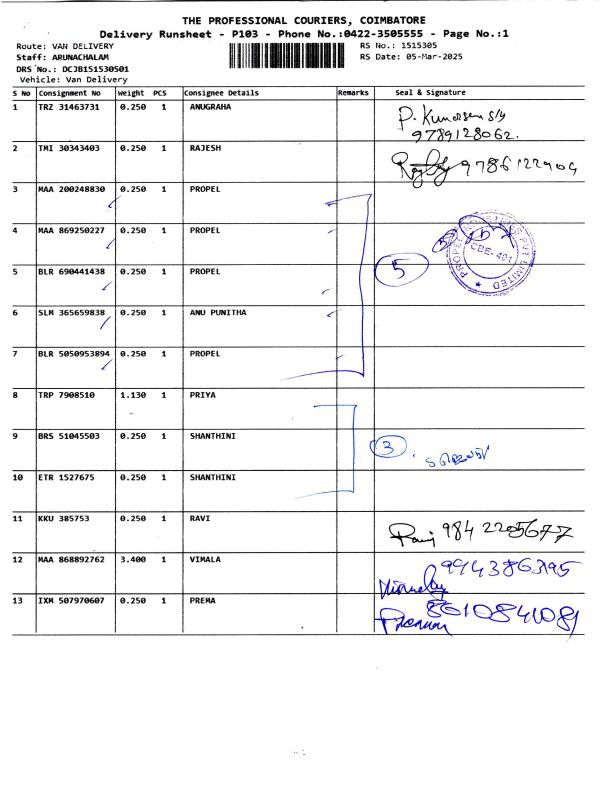 THE PROFESSIONAL COURIERS, COIMBATORE
Delivery Runsheet - P103 - Phone No.:0422-3505555 - Page No.:1
Route: VAN DELIVERY RS No.: 1515305
Staff: ARUNACHALAM RS Date: 05-Mar-2025
DRS No.: DCJB151530501
Vehicle: Van Delivery
S No Consignment No Weight PCS Consignee Details Remarks Seal & Signature
1 TRZ 31463731 0.250 1 ANUGRAHA
9789128062.
2 TMI 30343403 0.250 1 RAJESH
3 MAA 200248830 0.250 1 PROPEL
4 MAA 869250227 0.250 1 PROPEL
5 BLR 690441438 0.250 1 PROPEL 5
PROPEL INDUSTRIES PVT LIMITED
CBE-401
6 SLM 365659838 0.250 1 ANU PUNITHA
7 BLR 5050953894 0.250 1 PROPEL
8 TRP 7908510 1.130 1 PRIYA
9 BRS 51045503 0.250 1 SHANTHINI 3
10 ETR 1527675 0.250 1 SHANTHINI
11 KKU 385753 0.250 1 RAVI Ravi 984 2205677
12 MAA 868892762 3.400 1 VIMALA
13 IXM 507970607 0.250 1 PREMA